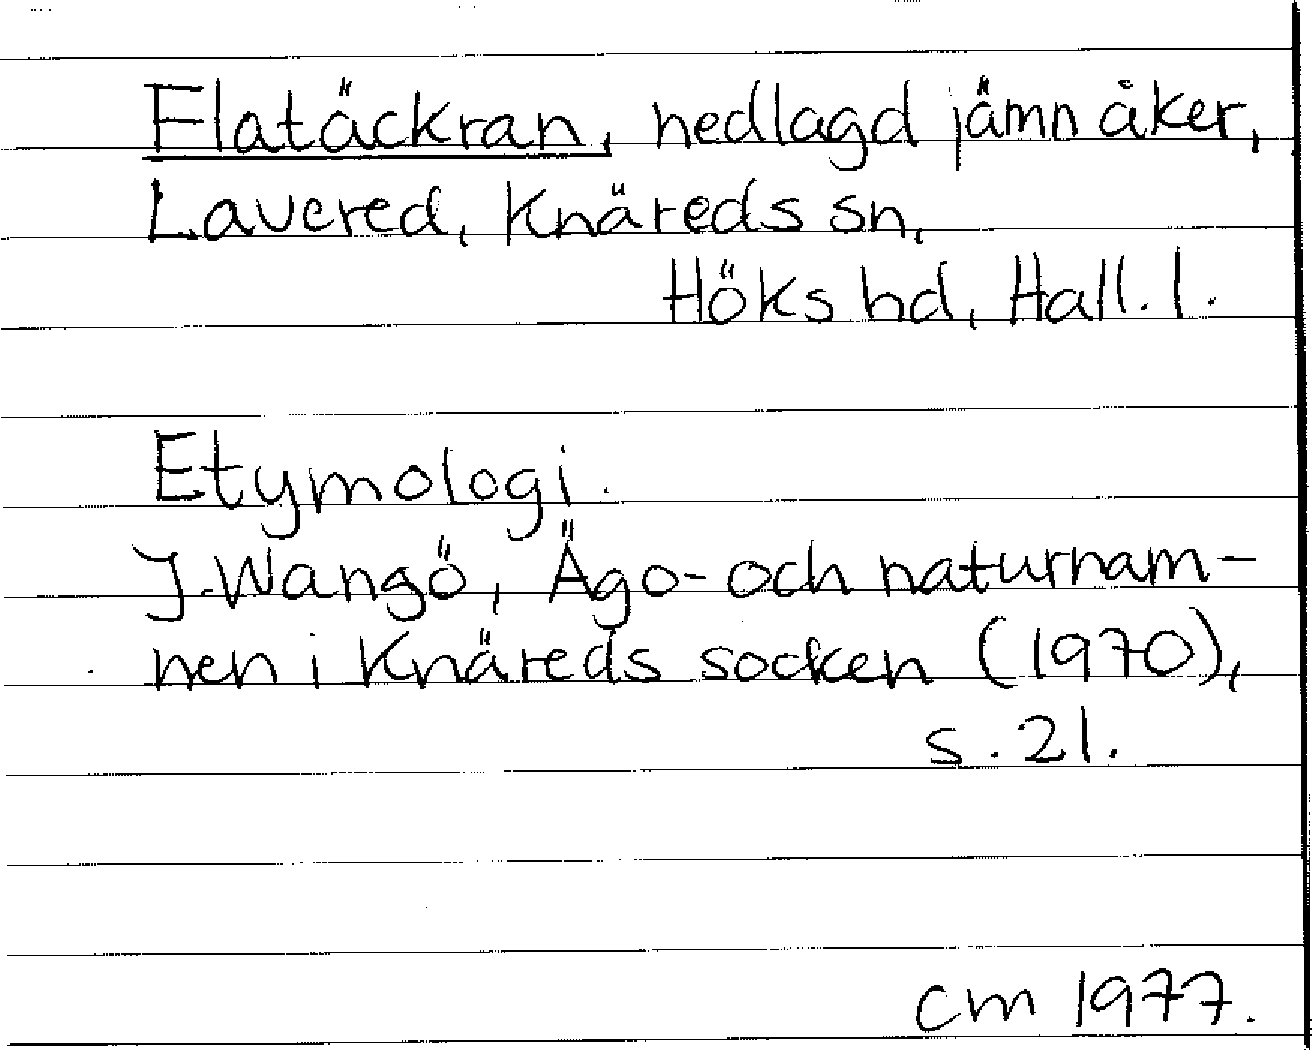 Flatäckran, nedlagd jämn åker,
Lavered, Knäreds sn,
Höks hd, Hall. l.
Etymologi.
J. Wangö, Ägo- och naturnam-
nen i Knäreds socken (1970),
s. 21.
cm 1977.